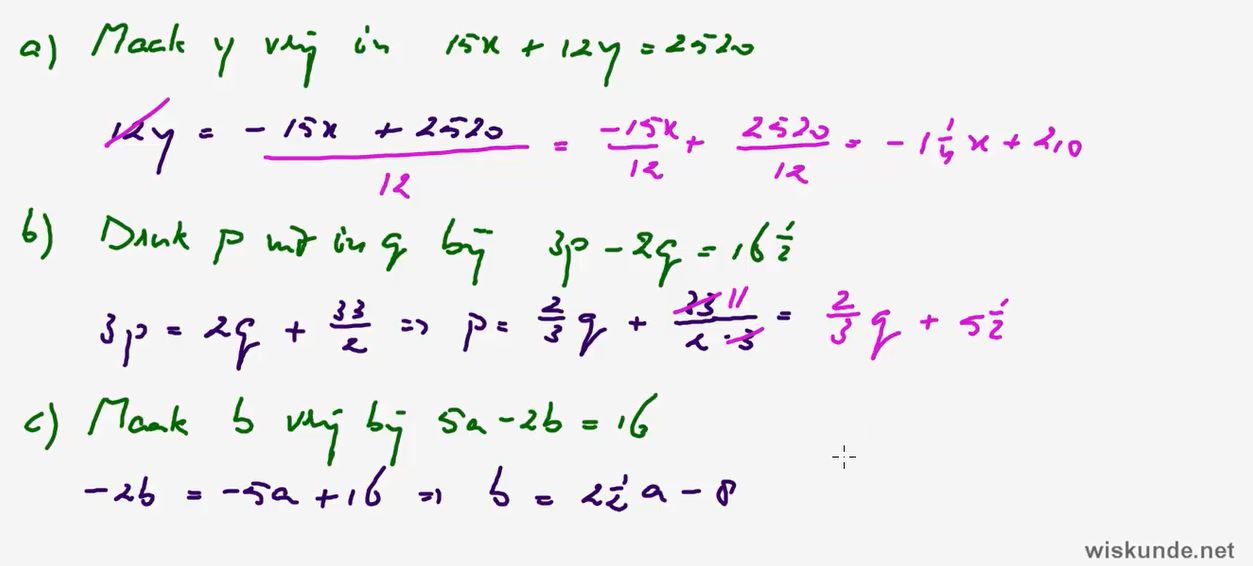 a) Maak y vrij in 15x + 12y = 2520
12y = - 15x + 2520 / 12 = -15x/12 + 2520/12 = - 1 1/4 x + 210
b) Druk p uit in q bij 3p - 2q = 16 1/2
3p = 2q + 33/2 => p = 2/3 q + 33 11 / 2·3 = 2/3 q + 5 1/2
c) Maak b vrij bij 5a - 2b = 16
-2b = -5a + 16 => b = 2 1/2 a - 8
wiskunde.net